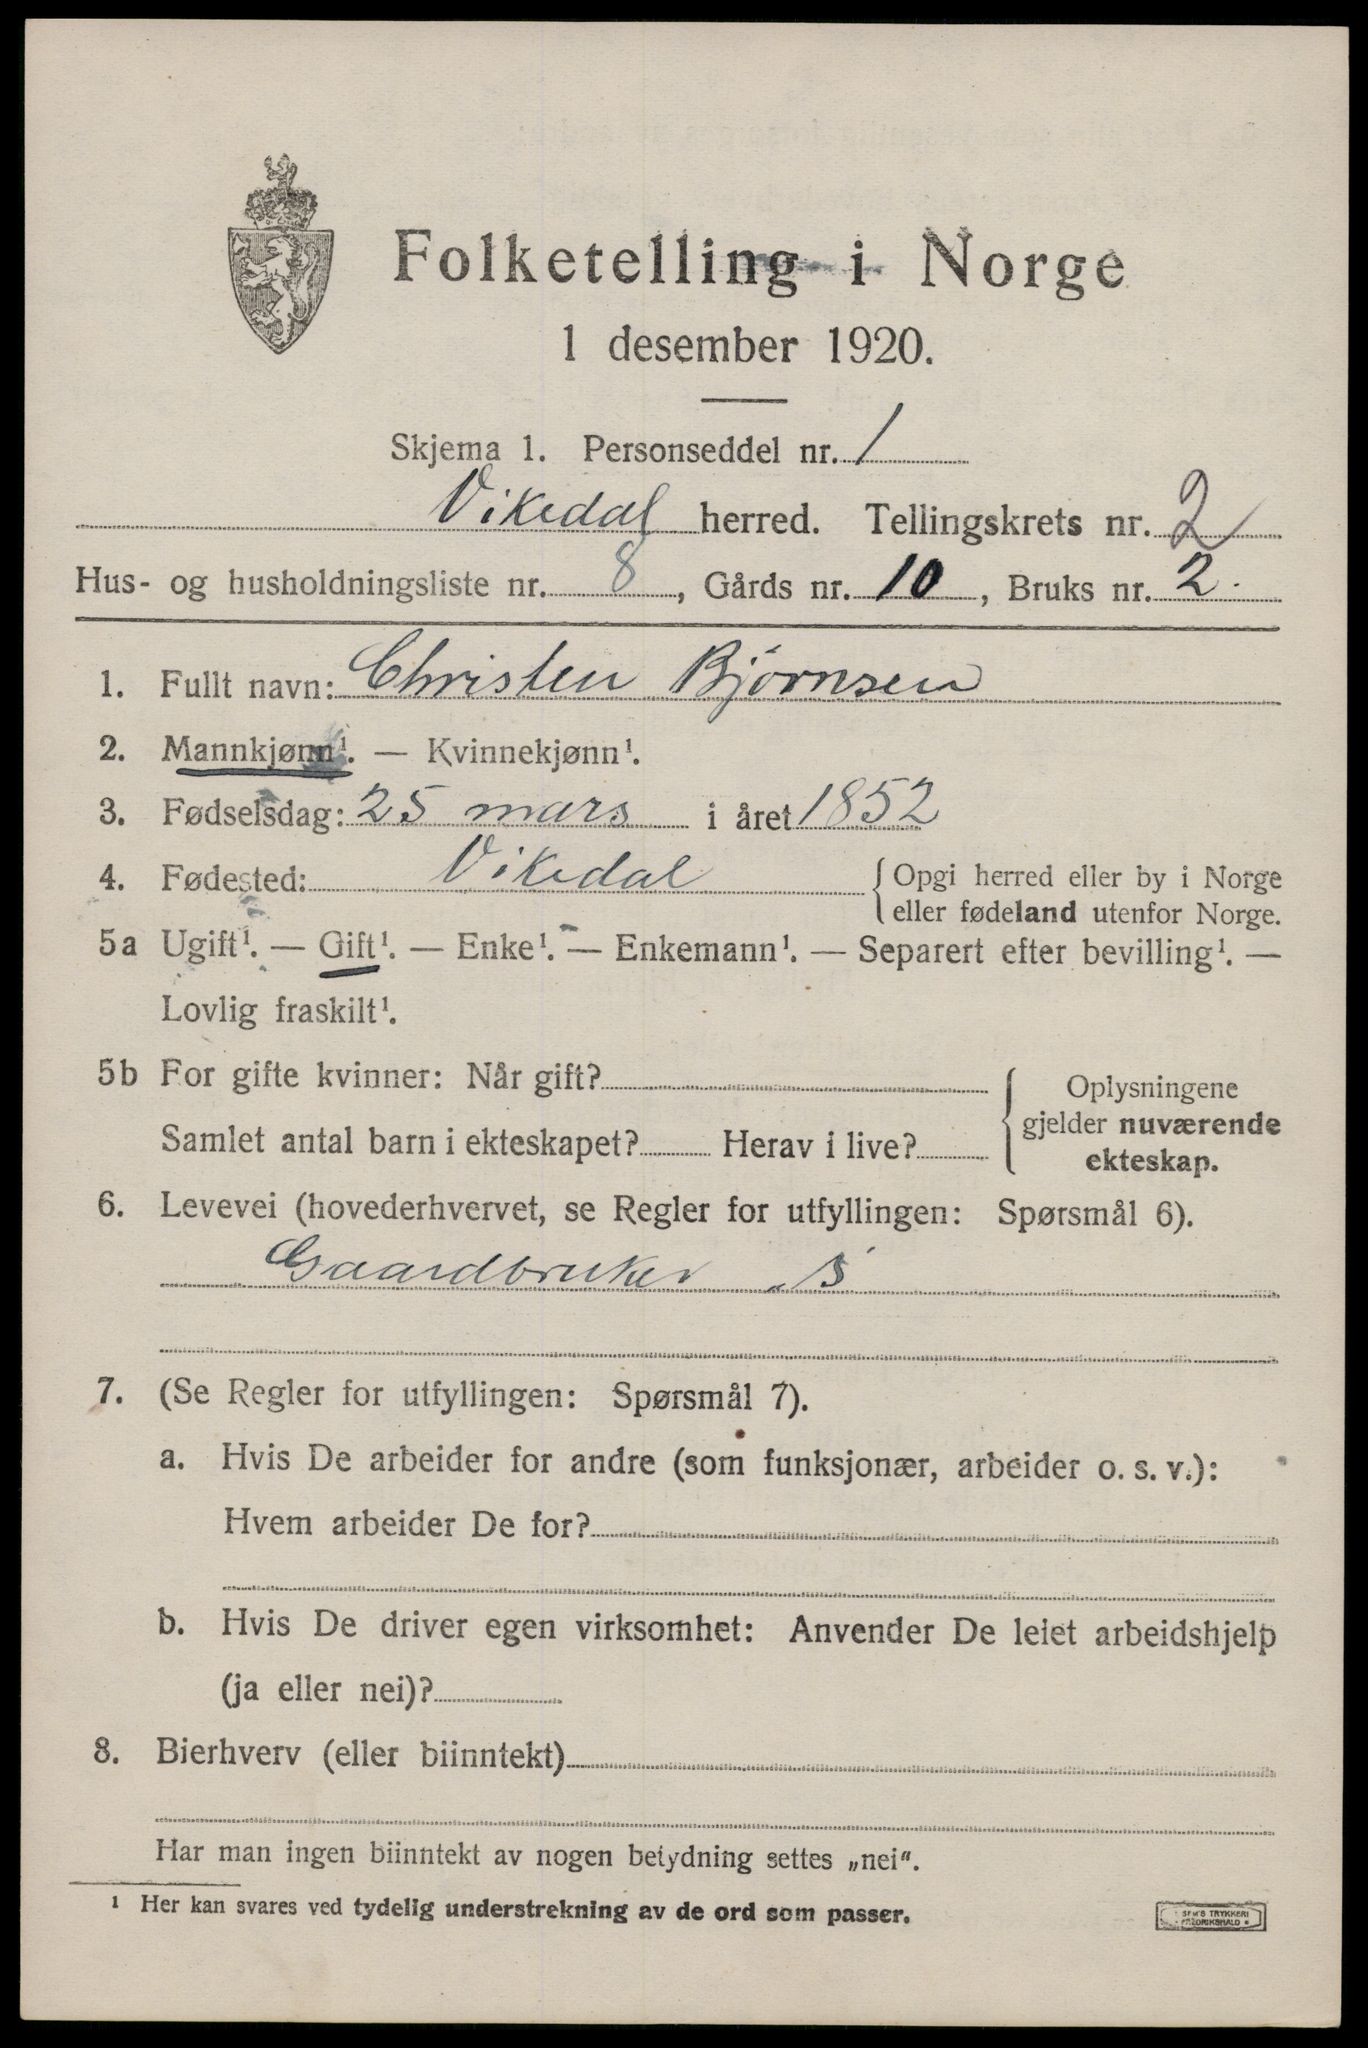 Folketelling i Norge
1 desember 1920.
Skjema 1. Personseddel nr. 1
Vikedal herred. Tellingskrets nr. 2
Hus- og husholdningsliste nr. 8, Gårds nr. 10, Bruks nr. 2.
1. Fullt navn: Christen Bjørnsen
2. Mannkjønn¹. — Kvinnekjønn¹.
3. Fødselsdag: 25 mars i året 1852
4. Fødested: Vikedal {Opgi herred eller by i Norge
eller fødeland utenfor Norge.
5a Ugift¹. — Gift¹. — Enke¹. — Enkemann¹. — Separert efter bevilling¹. —
Lovlig fraskilt¹.
5b For gifte kvinner: Når gift?
Samlet antal barn i ekteskapet? Herav i live?
Oplysningene
gjelder nuværende
ekteskap.
6. Levevei (hovederhvervet, se Regler for utfyllingen: Spørsmål 6).
Gaardbruker
7. (Se Regler for utfyllingen: Spørsmål 7).
a. Hvis De arbeider for andre (som funksjonær, arbeider o. s. v.):
Hvem arbeider De for?
b. Hvis De driver egen virksomhet: Anvender De leiet arbeidshjelp
(ja eller nei)?
8. Bierhverv (eller biinntekt)
Har man ingen biinntekt av nogen betydning settes „nei".
¹ Her kan svares ved tydelig understrekning av de ord som passer.
TRYKKERI
FREDRIKSHALD